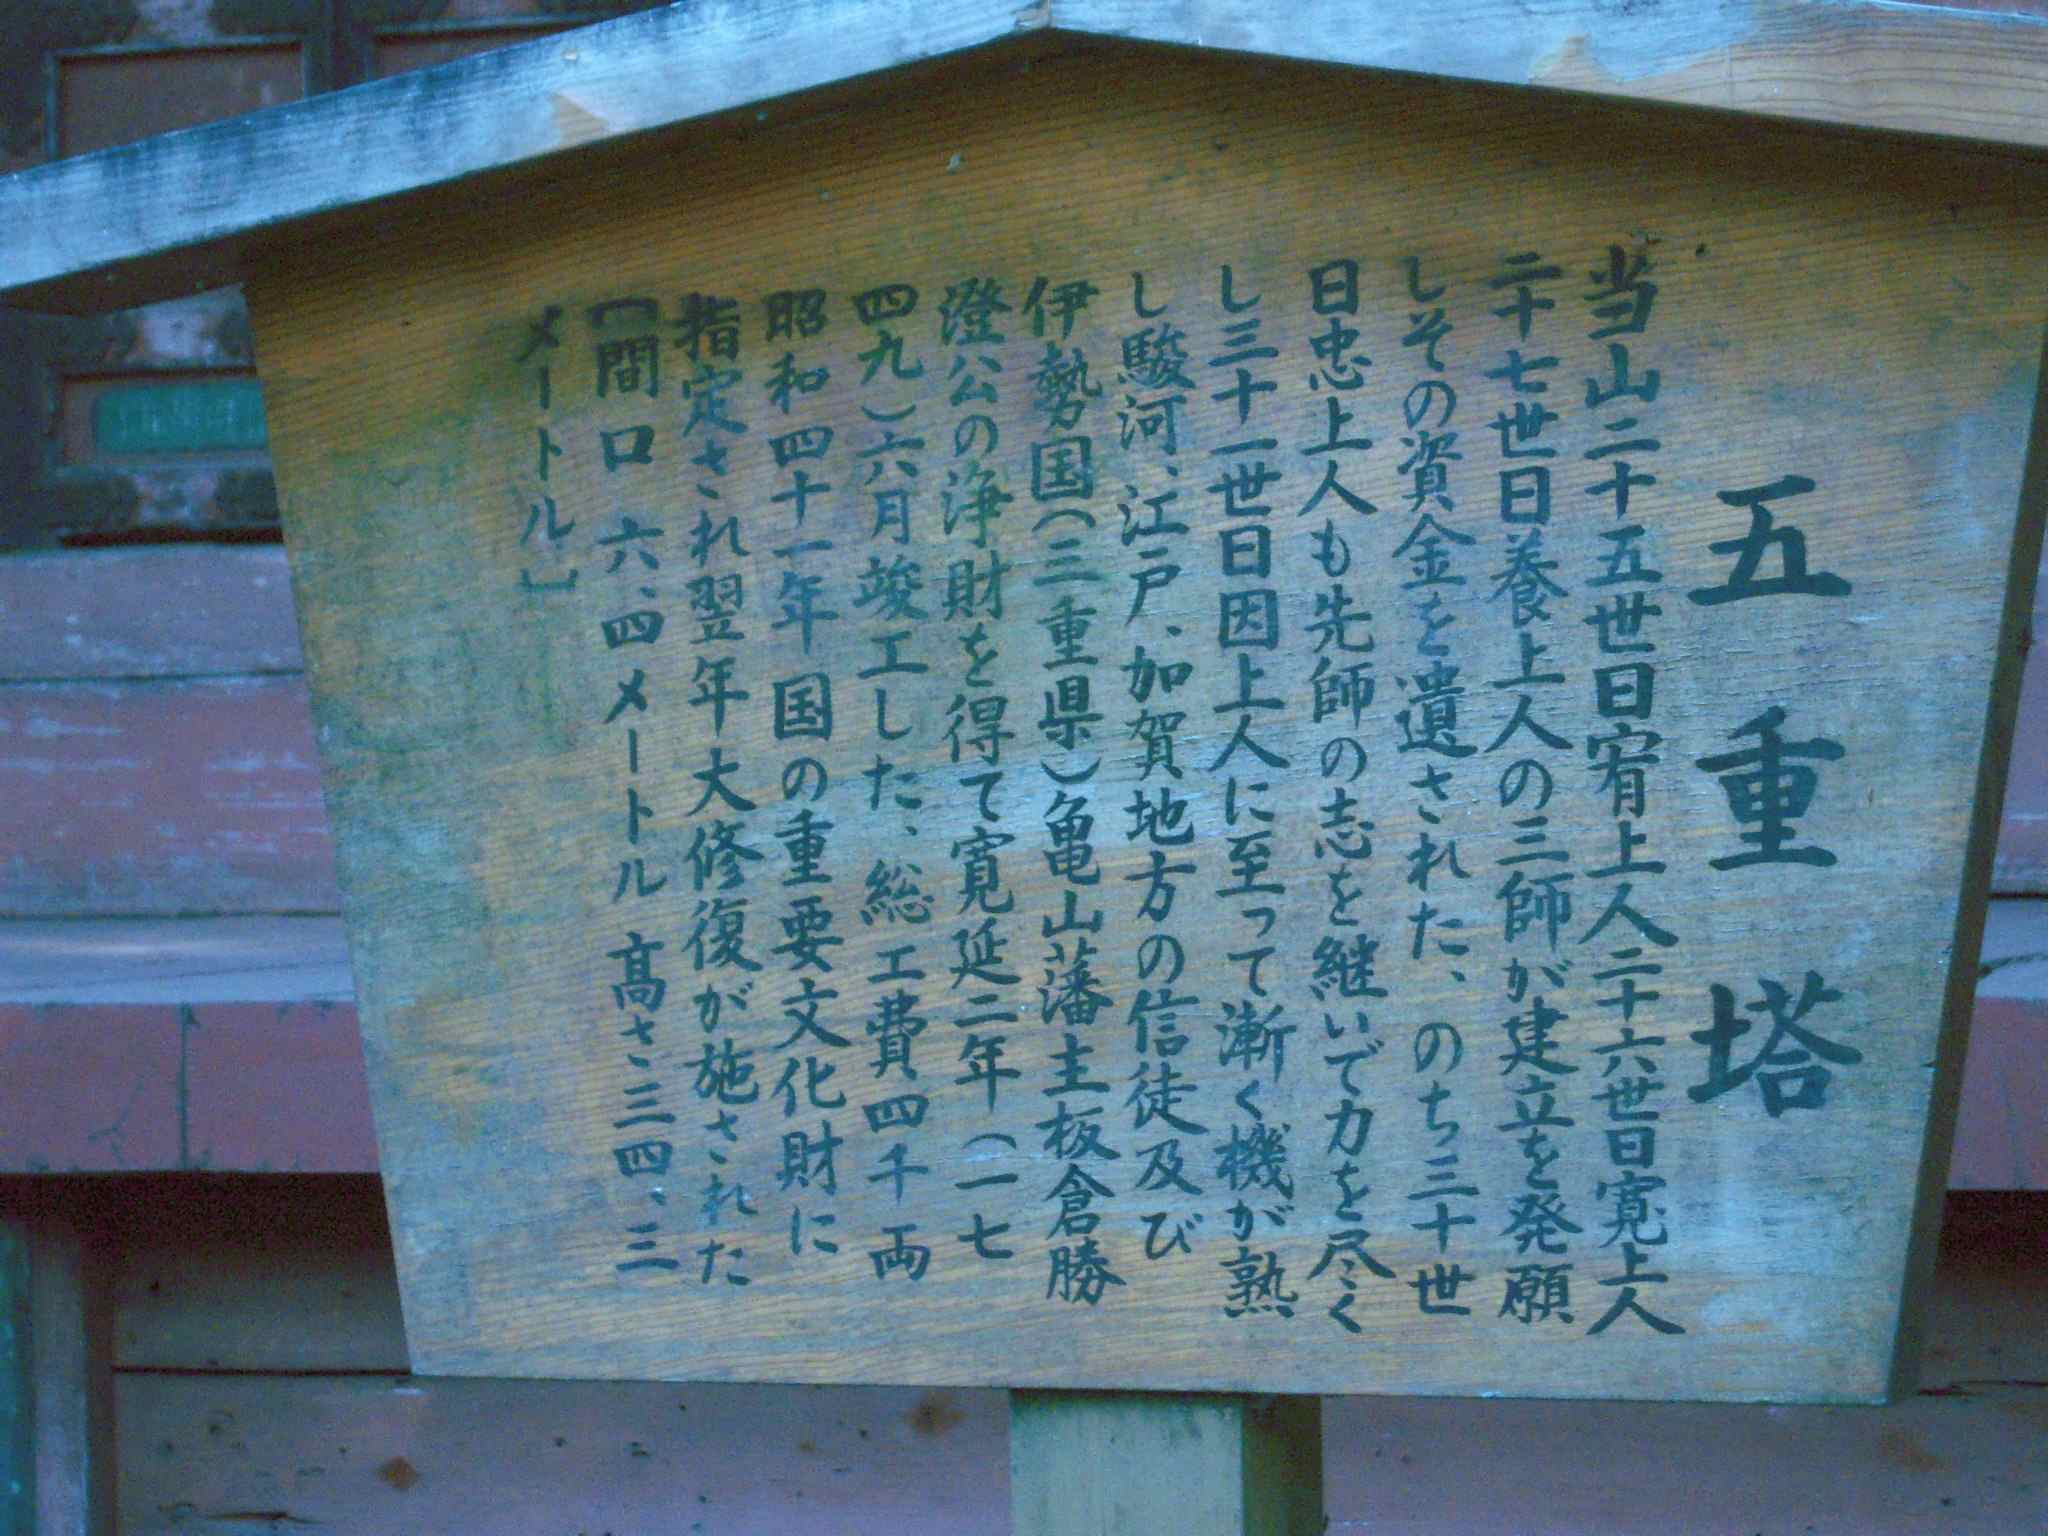 五重塔
当山二十五世日宥上人二十六世日寛上人
二十七世日養上人の三師が建立を発願
しその資金を遺された、のち三十世
日忠上人も先師の志を継いで力を尽く
し三十一世日因上人に至って漸く機が熟
し駿河、江戸、加賀地方の信徒及び
伊勢国(三重県)亀山藩主板倉勝
澄公の浄財を得て寛延二年(一七
四九)六月竣工した、総工費四千両
昭和四十一年国の重要文化財に
指定され翌年大修復が施された
〔間口 六、四メートル 高さ三四、三
メートル〕